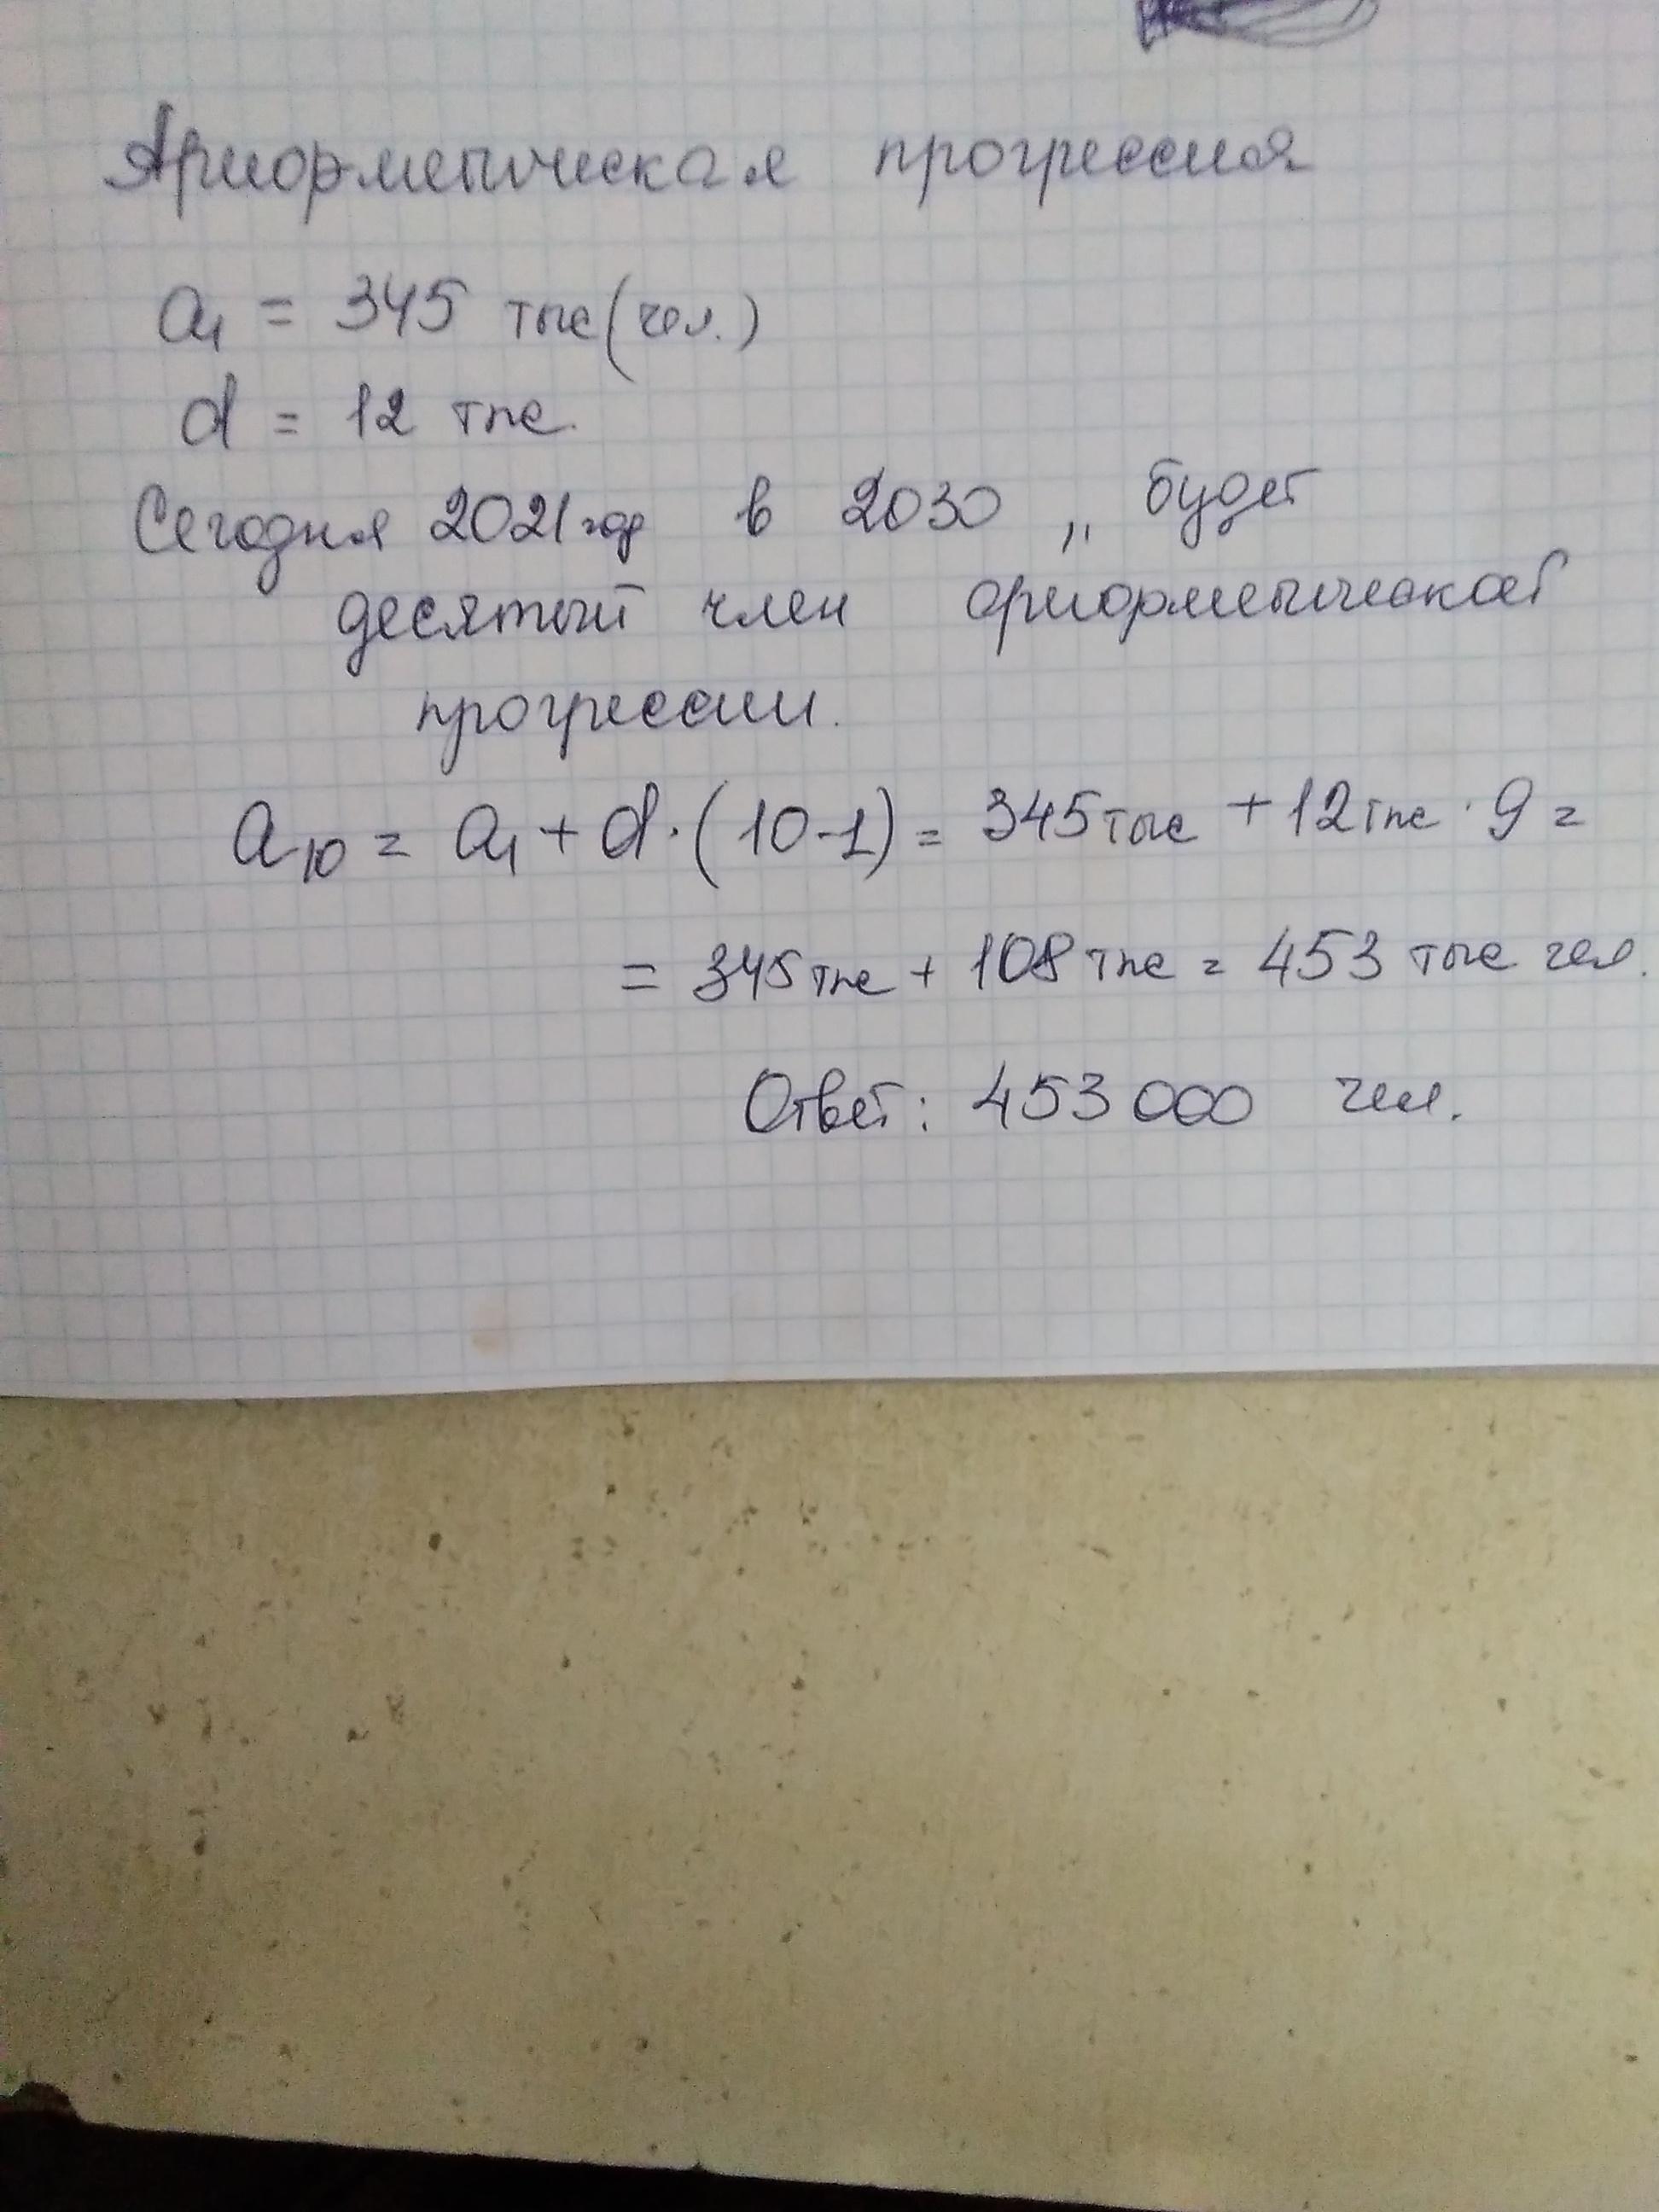 Ариорметическая прогрессия
a₁ = 345 тыс (чел.)
d = 12 тыс.
Сегодня 2021 год в 2030 ,, будет
десятый член ариорметической
прогрессии.
a₁₀ = a₁ + d · (10-1) = 345 тыс + 12 тыс · 9 =
= 345 тыс + 108 тыс = 453 тыс чел.
Ответ: 453 000 чел.